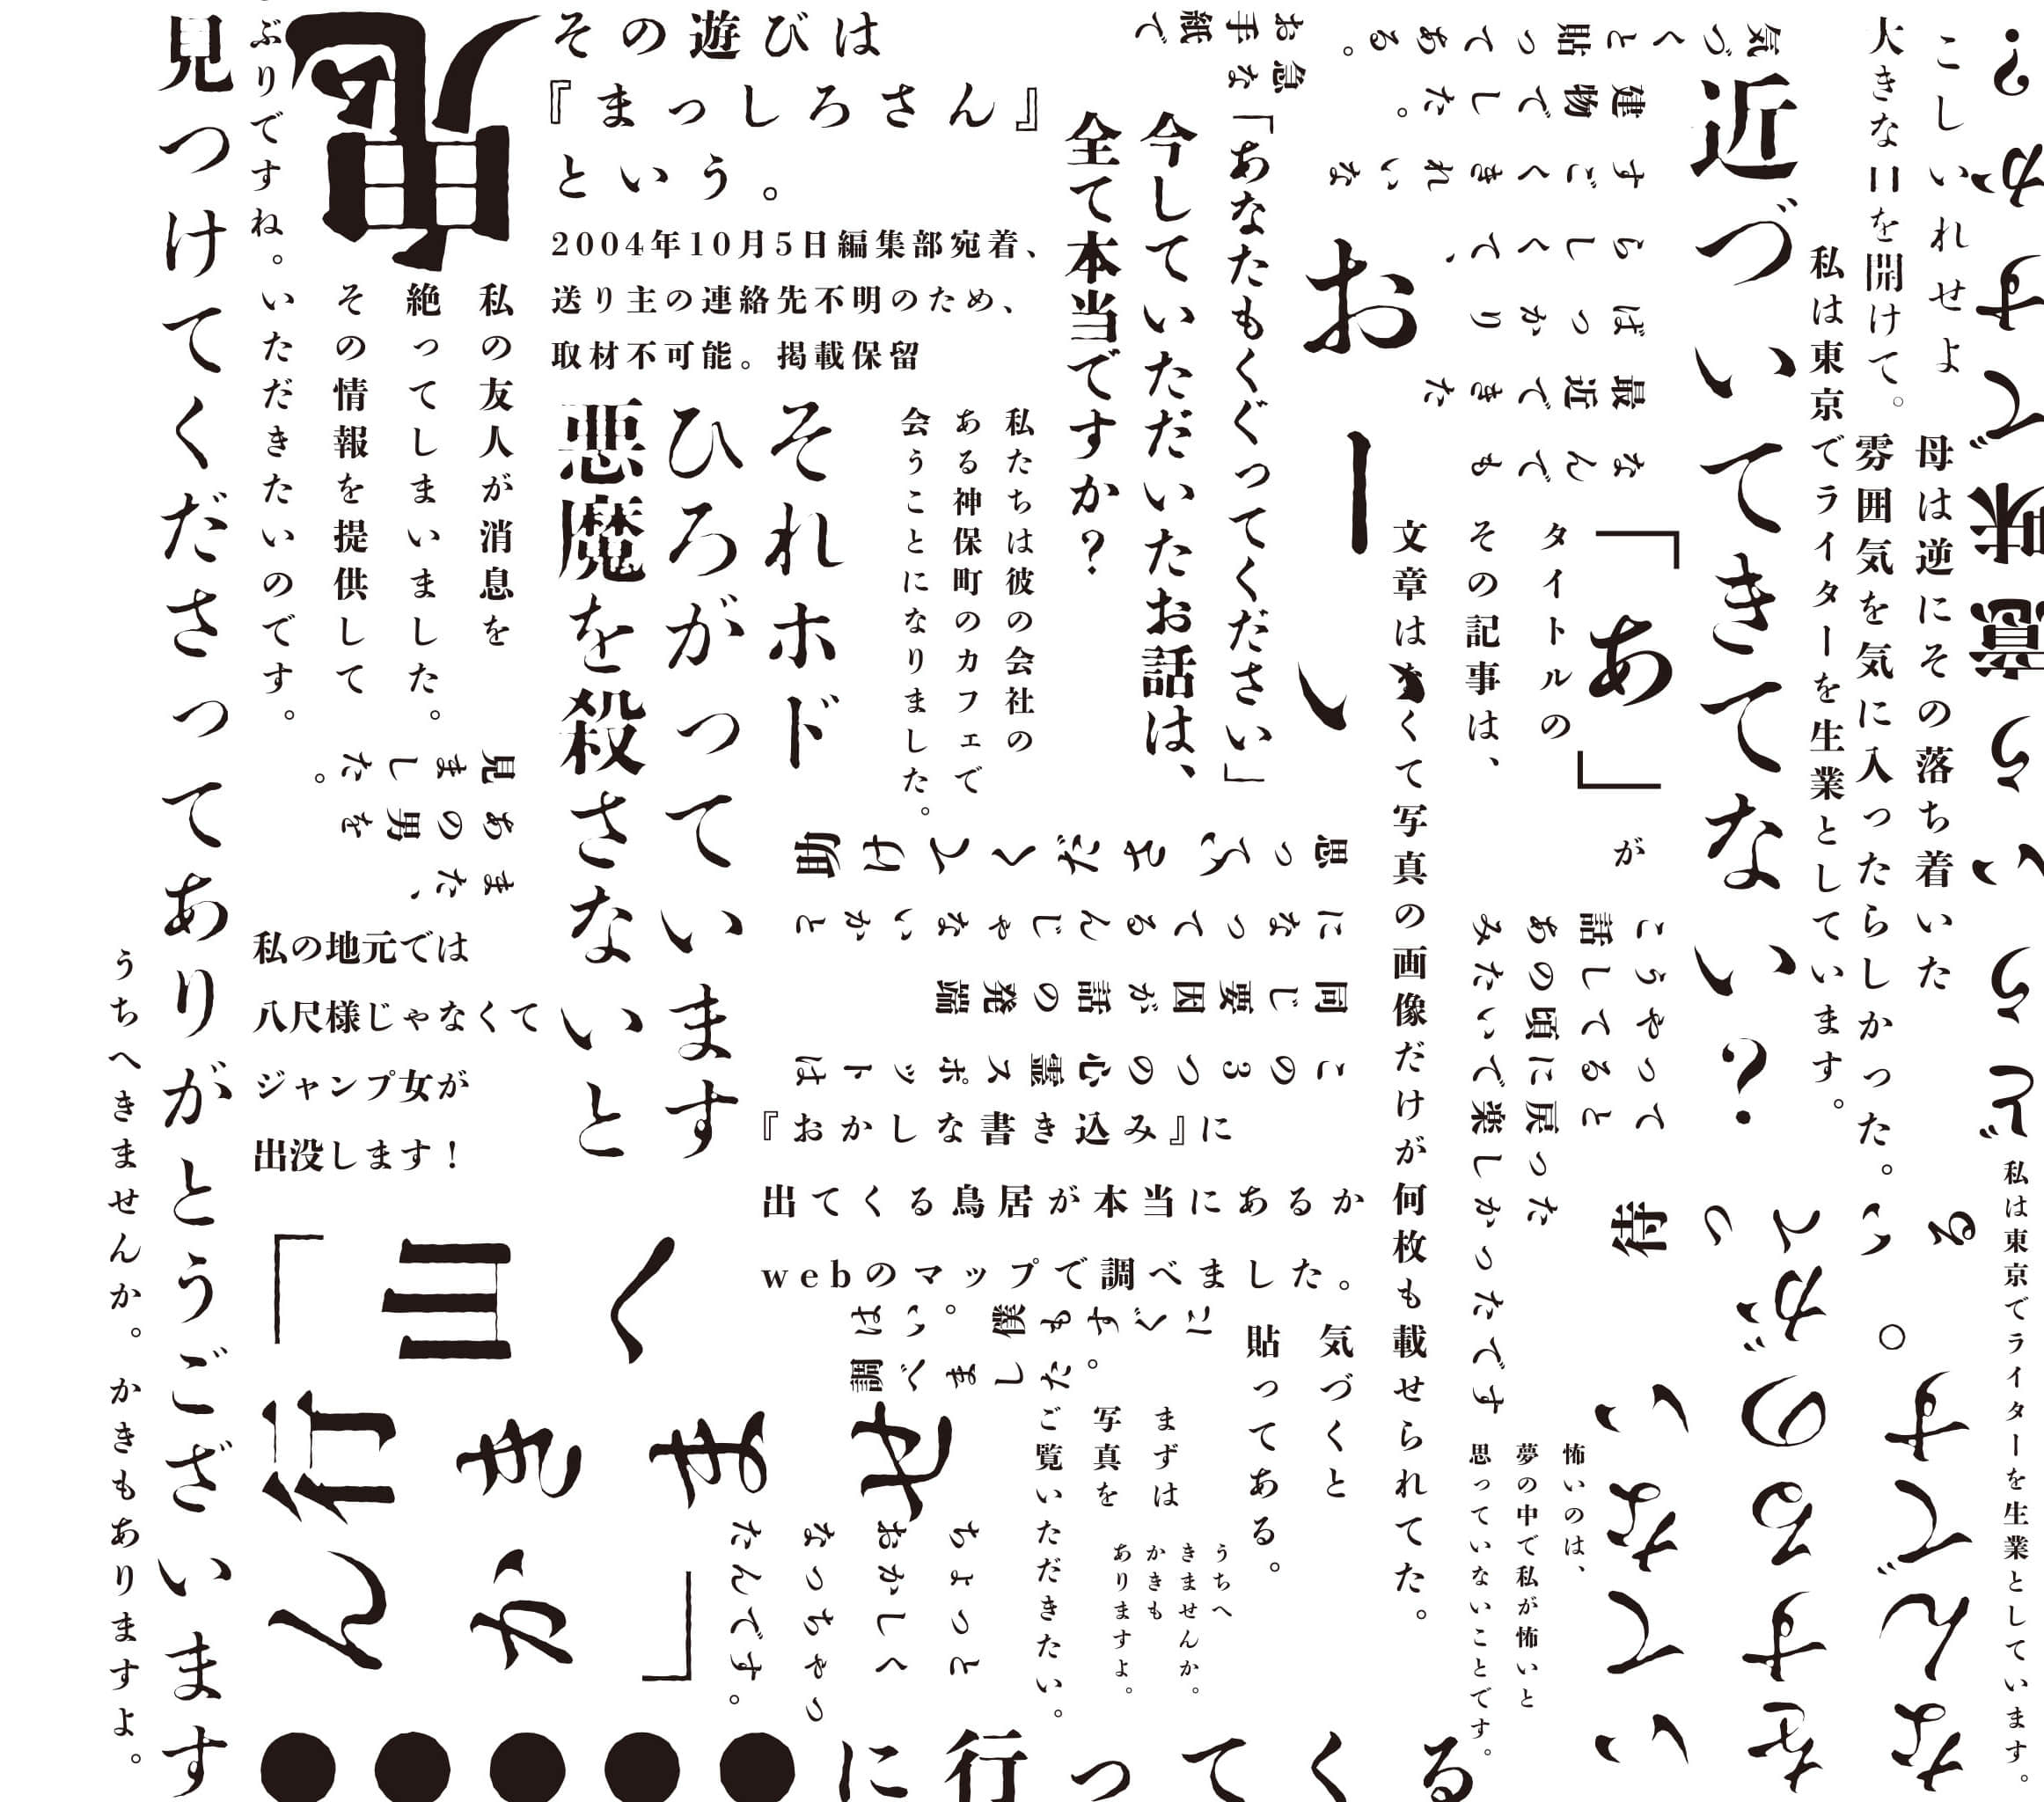 どういう意味ですか?
こしいれせよ
大きな口を開けて。
母は逆にその落ち着いた
雰囲気を気に入ったらしかった。
私は東京でライターを生業としています。
私は東京でライターを生業としています。
近づいてきてない?
気づくと貼ってある。
なんでも
最近できた
ばっかり
らしくて、
すごくきれいな
建物でした。
急な
お手紙で
「あなたもくぐってください」
今していただいたお話は、
全て本当ですか?
おーい
「あ」が
タイトルの
その記事は、
文章はくて写真の画像だけが何枚も載せられてた。
こうやって
話してると
あの頃に戻った
みたいで楽しかったです
待っている。
なんです
をするのが
いてない
怖いのは、
夢の中で私が怖いと
思っていないことです。
その遊びは
『まっしろさん』
という。
2004年10月5日編集部宛着、
送り主の連絡先不明のため、
取材不可能。掲載保留
私たちは彼の会社の
ある神保町のカフェで
会うことになりました。
それホド
ひろがっています
悪魔を殺さないと
この3つの心霊スポットは
同じ要因が話の発端
になってるんじゃないかと
思って
『おかしな書き込み』に
出てくる鳥居が本当にあるか
webのマップで調べました。
はい。僕もすぐに
調べました。
気づくと
貼ってある。
まずは
写真を
ご覧いただきたい。
うちへ
きませんか。
かきも
ありますよ。
ちょっと
おかしく
なっちゃっ
たんです。
私の友人が消息を
絶ってしまいました。
その情報を提供して
いただきたいのです。
ぶりですね。
また、
あの男を
見ました。
私の地元では
八尺様じゃなくて
ジャンプ女が
出没します!
「山へ行きませんか」
●●●●●に行ってくる
見つけてくださってありがとうございます
うちへきませんか。かきもありますよ。